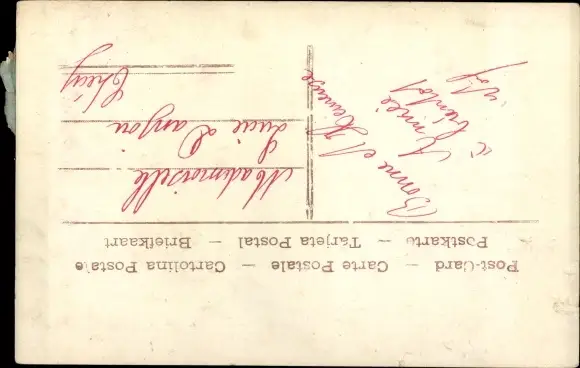 Post-Card — Carte Postale — Cartolina Postale
Postkarte — Tarjeta Postal — Briefkaart
Bonne et Heureuse
Année
à bientôt
Mademoiselle
Lucie Danjou
Chécy